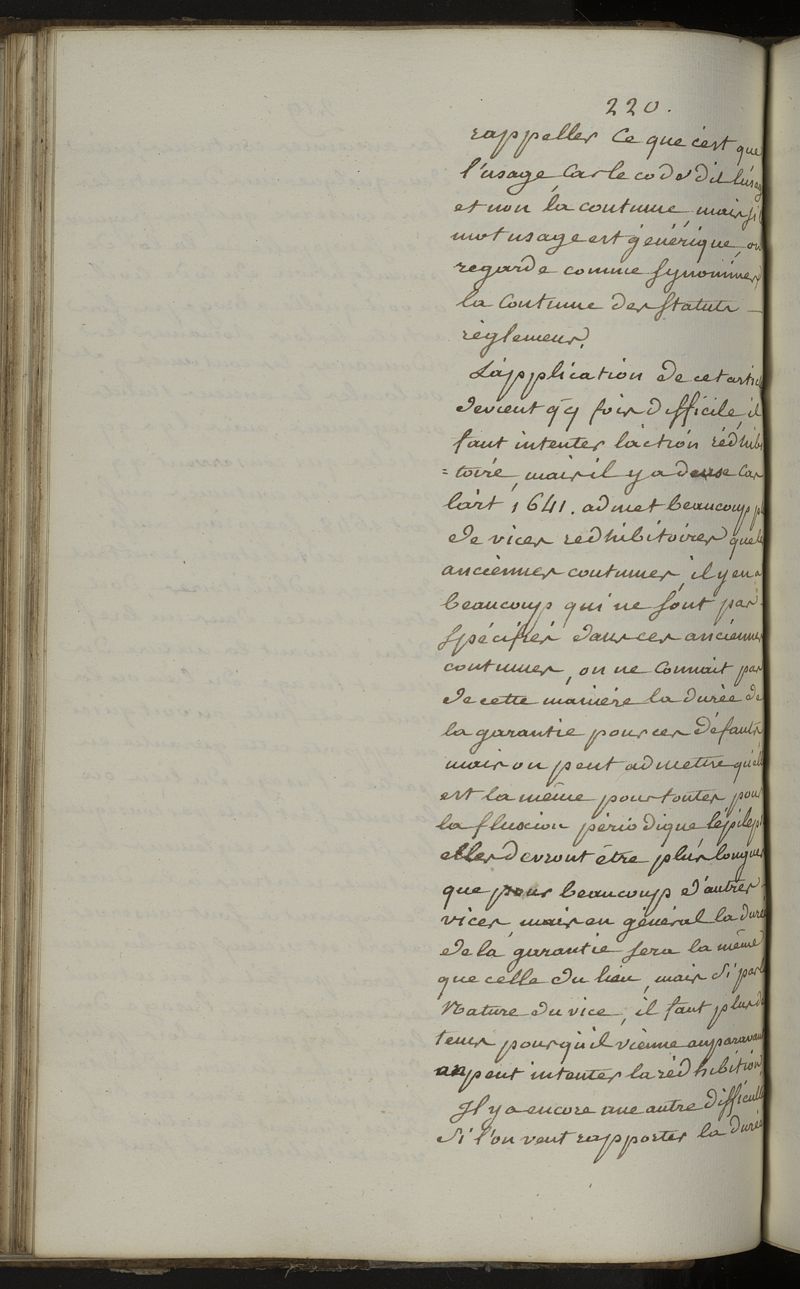 220.
rappeller Ce que c'est que
l'usage, Car le code dit l'usag
et non la coutume, mais si l
mot usage est générique, on
regarde comme synonimes,
la Coutume des statuts
règlemens.
L'application de cet artic
devient qq fois difficile, il
faut intenter l'action rédhibi
=toire, mais il y a Car
l'art 1641. admet beaucoup pl
de vices redhibitoires que le
anciennes coutumes, il y en a
beaucoup qui ne sont pas
spécifiés dans ces anciennes
coutumes, on ne Connait pas
de cette manière la durée de
la garantie pour ces défauts
mais on peut admettre qu'ell
est la même pour toutes, pour
la fluxion périodique l'épilep
elles devront être plus longues
que pour beaucoup d'autres
vices, mais en général la durée
de la garantie sera la même
que celle du lieu, mais si par l
Nature du vice, il faut plus de
tems pour qu'il vienne auparavant
on peut intenter la rédhibition,
Il y a encore une autre difficulté
si l'on veut rapporter la durée